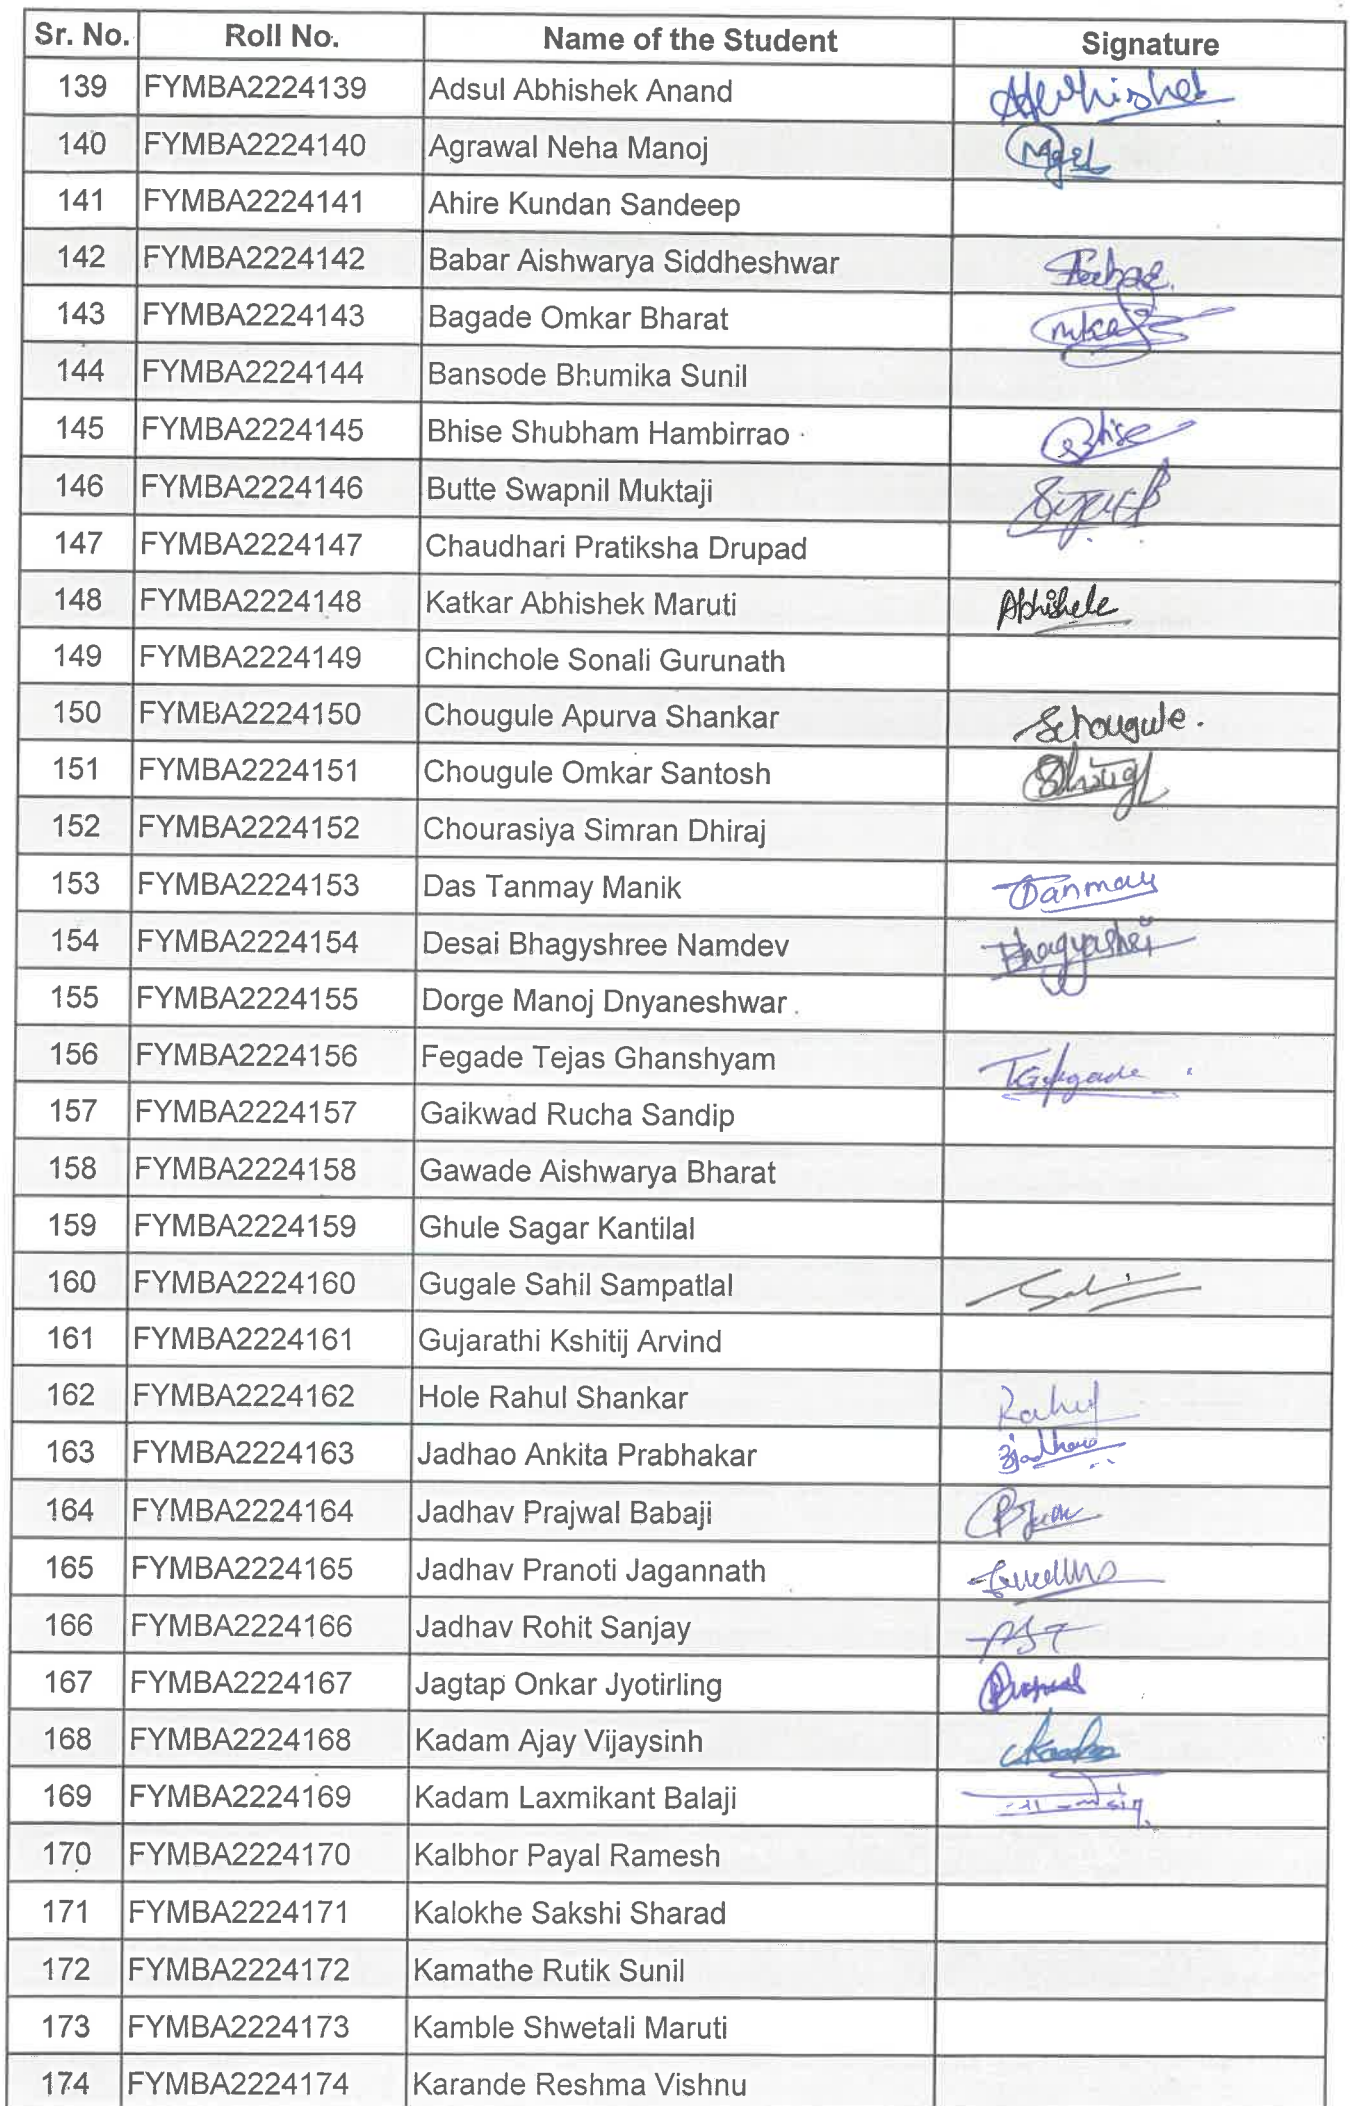 Sr. No. Roll No. Name of the Student Signature
139 FYMBA2224139 Adsul Abhishek Anand Abhishek
140 FYMBA2224140 Agrawal Neha Manoj
141 FYMBA2224141 Ahire Kundan Sandeep
142 FYMBA2224142 Babar Aishwarya Siddheshwar
143 FYMBA2224143 Bagade Omkar Bharat
144 FYMBA2224144 Bansode Bhumika Sunil
145 FYMBA2224145 Bhise Shubham Hambirrao Bhise
146 FYMBA2224146 Butte Swapnil Muktaji
147 FYMBA2224147 Chaudhari Pratiksha Drupad
148 FYMBA2224148 Katkar Abhishek Maruti Abhishek
149 FYMBA2224149 Chinchole Sonali Gurunath
150 FYMBA2224150 Chougule Apurva Shankar Schougule.
151 FYMBA2224151 Chougule Omkar Santosh
152 FYMBA2224152 Chourasiya Simran Dhiraj
153 FYMBA2224153 Das Tanmay Manik Tanmay
154 FYMBA2224154 Desai Bhagyshree Namdev
155 FYMBA2224155 Dorge Manoj Dnyaneshwar
156 FYMBA2224156 Fegade Tejas Ghanshyam TGFegade
157 FYMBA2224157 Gaikwad Rucha Sandip
158 FYMBA2224158 Gawade Aishwarya Bharat
159 FYMBA2224159 Ghule Sagar Kantilal
160 FYMBA2224160 Gugale Sahil Sampatlal
161 FYMBA2224161 Gujarathi Kshitij Arvind
162 FYMBA2224162 Hole Rahul Shankar Rahul
163 FYMBA2224163 Jadhao Ankita Prabhakar
164 FYMBA2224164 Jadhav Prajwal Babaji
165 FYMBA2224165 Jadhav Pranoti Jagannath
166 FYMBA2224166 Jadhav Rohit Sanjay
167 FYMBA2224167 Jagtap Onkar Jyotirling
168 FYMBA2224168 Kadam Ajay Vijaysinh
169 FYMBA2224169 Kadam Laxmikant Balaji
170 FYMBA2224170 Kalbhor Payal Ramesh
171 FYMBA2224171 Kalokhe Sakshi Sharad
172 FYMBA2224172 Kamathe Rutik Sunil
173 FYMBA2224173 Kamble Shwetali Maruti
174 FYMBA2224174 Karande Reshma Vishnu